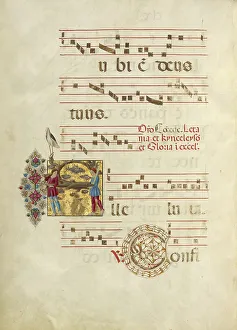 u bi ē deus
tuus.
Dño Cōcede. Leta
nia et kyrieleyso
et Gloria i excel.
lle lu u
℣ Confi